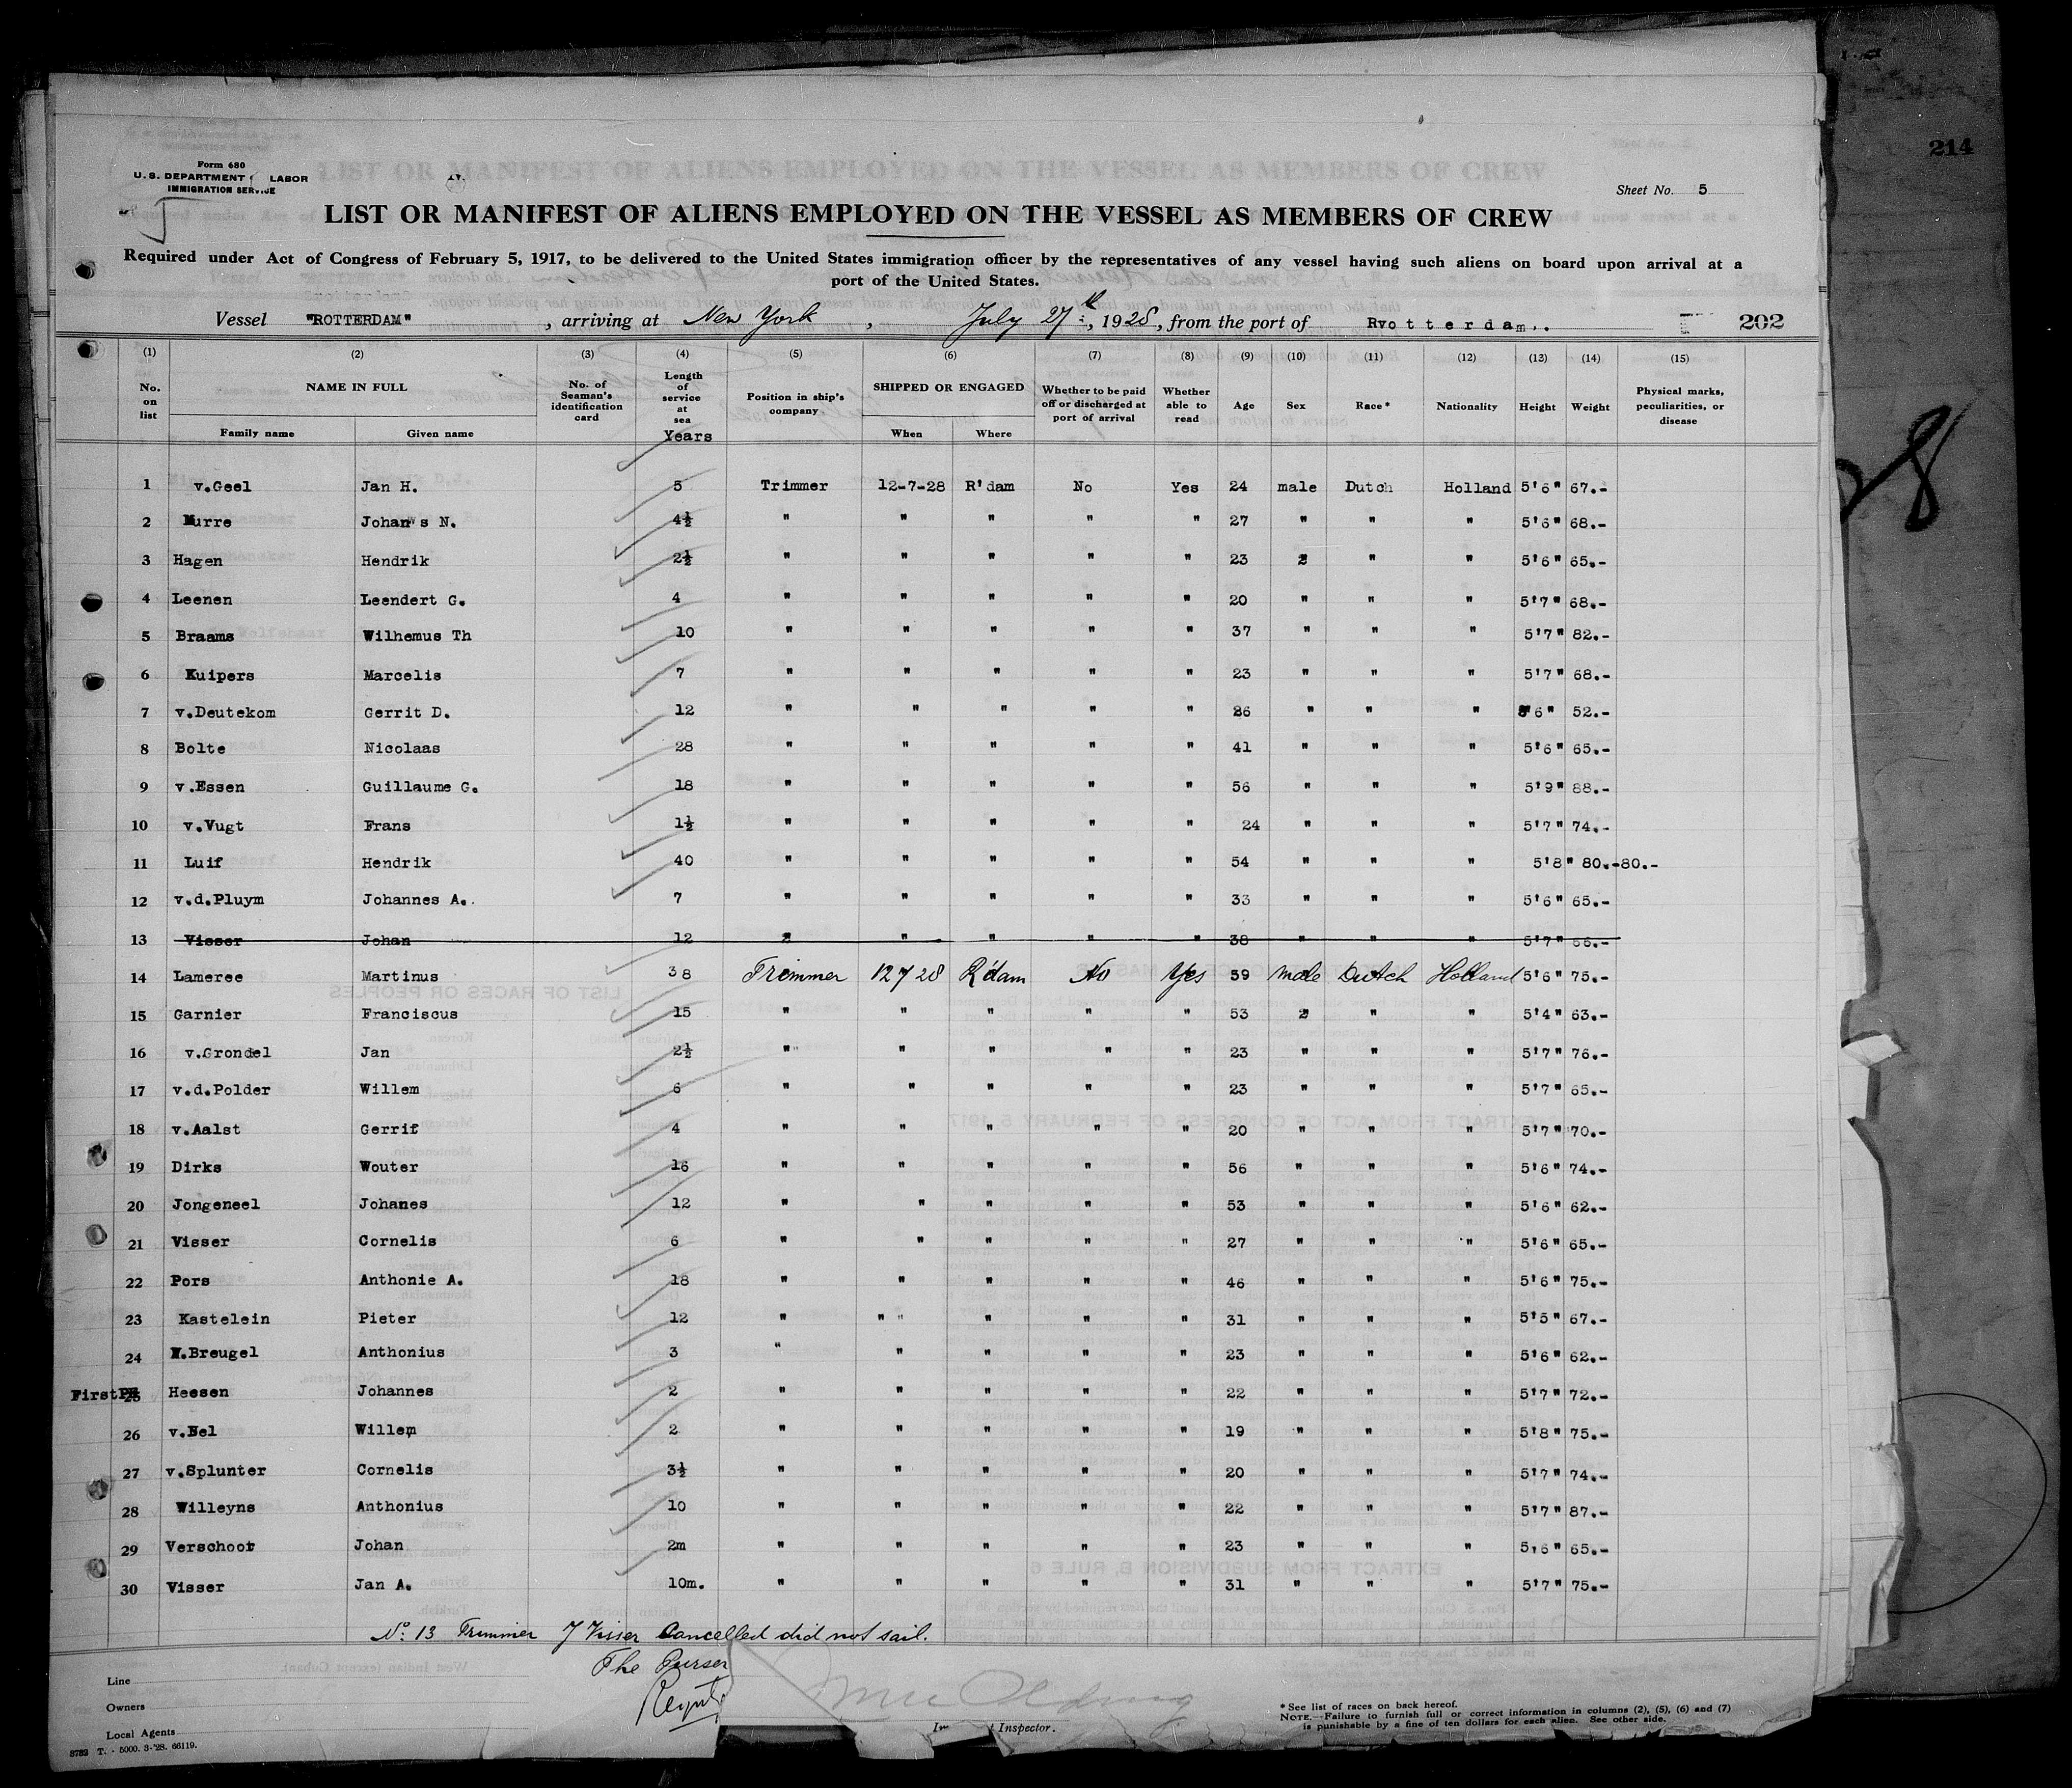 214
Form 680
U. S. DEPARTMENT LABOR
IMMIGRATION SERVICE
Sheet No. 5
LIST OR MANIFEST OF ALIENS EMPLOYED ON THE VESSEL AS MEMBERS OF CREW
Required under Act of Congress of February 5, 1917, to be delivered to the United States immigration officer by the representatives of any vessel having such aliens on board upon arrival at a
port of the United States.
Vessel "ROTTERDAM", arriving at New York, July 27th, 1928, from the port of Rvotterdam.. 202
(1) (2) (3) (4) (5) (6) (7) (8) (9) (10) (11) (12) (13) (14) (15)
No. on list NAME IN FULL Family name Given name No. of Seaman's identification card Length of service at sea Years Position in ship's company SHIPPED OR ENGAGED When Where Whether to be paid off or discharged at port of arrival Whether able to read Age Sex Race* Nationality Height Weight Physical marks, peculiarities, or disease
1 v.Geel Jan H. 5 Trimmer 12-7-28 R'dam No Yes 24 male Dutch Holland 5'6" 67.-
2 Murre Johan's N. 4½ " " " " " 27 " " " 5'6" 68.-
3 Hagen Hendrik 2½ " " " " " 23 2 " " 5'6" 65.-
4 Leenen Leendert G. 4 " " " " " 20 " " " 5'7" 68.-
5 Braams Wilhemus Th 10 " " " " " 37 " " " 5'7" 82.-
6 Kuipers Marcelis 7 " " " " " 23 " " " 5'7" 68.-
7 v.Deutekom Gerrit D. 12 " " " " " 26 " " " 6" 52.-
8 Bolte Nicolaas 28 " " " " " 41 " " " 5'6" 65.-
9 v.Essen Guillaume G. 18 " " " " " 56 " " " 5'9" 88.-
10 v.Vugt Frans 1½ " " " " " 24 " " " 5'7" 74.-
11 Luif Hendrik 40 " " " " " 54 " " " 5'8" 80.-80.-
12 v.d.Pluym Johannes A. 7 " " " " " 33 " " " 5'6" 65.-
13 Visser Johan 12 2 " " " " 38 " " " 5'7" 66.-
14 Lameree Martinus 38 Trimmer 12 7 28 R'dam No Yes 59 male Dutch Holland 5'6" 75.-
15 Garnier Franciscus 15 " " " " " 53 2 " " 5'4" 63.-
16 v.Grondel Jan 2½ " " " " " 23 " " " 5'7" 76.-
17 v.d.Polder Willem 6 " " " " " 23 " " " 5'7" 65.-
18 v.Aalst Gerrit 4 " " " " " 20 " " " 5'7" 70.-
19 Dirks Wouter 16 " " " " " 56 " " " 5'6" 74.-
20 Jongeneel Johanes 12 " " " " " 53 " " " 5'6" 62.-
21 Visser Cornelis 6 " " " " " 27 " " " 5'6" 65.-
22 Pors Anthonie A. 18 " " " " " 46 " " " 5'6" 75.-
23 Kastelein Pieter 12 " " " " " " 31 " " " 5'5" 67.-
24 V.Breugel Anthonius 3 " " " " " 23 " " " 5'6" 62.-
First 25 Heesen Johannes 2 " " " " " 22 " " " 5'7" 72.-
26 v.Nel Willem 2 " " " " " 19 " " " 5'8" 75.-
27 v.Splunter Cornelis 3½ " " " " " 20 " " " 5'7" 74.-
28 Willeyns Anthonius 10 " " " " " 22 " " " 5'7" 87.-
29 Verschoor Johan 2m " " " " " 23 " " " 5,6" 65.-
30 Visser Jan A. 10m. " " " " " 31 " " " 5'7" 75.-
No: 13 Trimmer J Visser Cancelled did not sail.
The Purser
Line
Owners
Local Agents
Inspector.
* See list of races on back hereof.
NOTE.—Failure to furnish full or correct information in columns (2), (5), (6) and (7)
is punishable by a fine of ten dollars for each alien. See other side.
3732 T. - 5000. 3-'28. 66119.